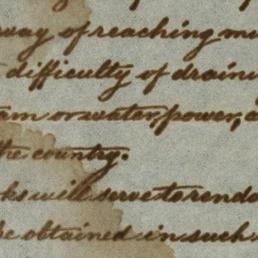 way of reaching mu
difficulty of draini
am or water, power, a
the country.
ks will serve to rende
be obtained in such